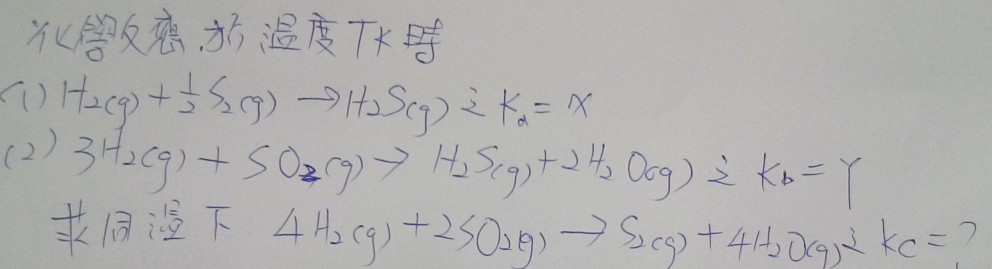 化學反應.於溫度TK時
(1) H2(g) + 1/2 S2(g) → H2S(g) 之 Ka = X
(2) 3H2(g) + SO2(g) → H2S(g) + 2H2O(g) 之 Kb = Y
求同溫下 4H2(g) + 2SO2(g) → S2(g) + 4H2O(g) 之 Kc = ?